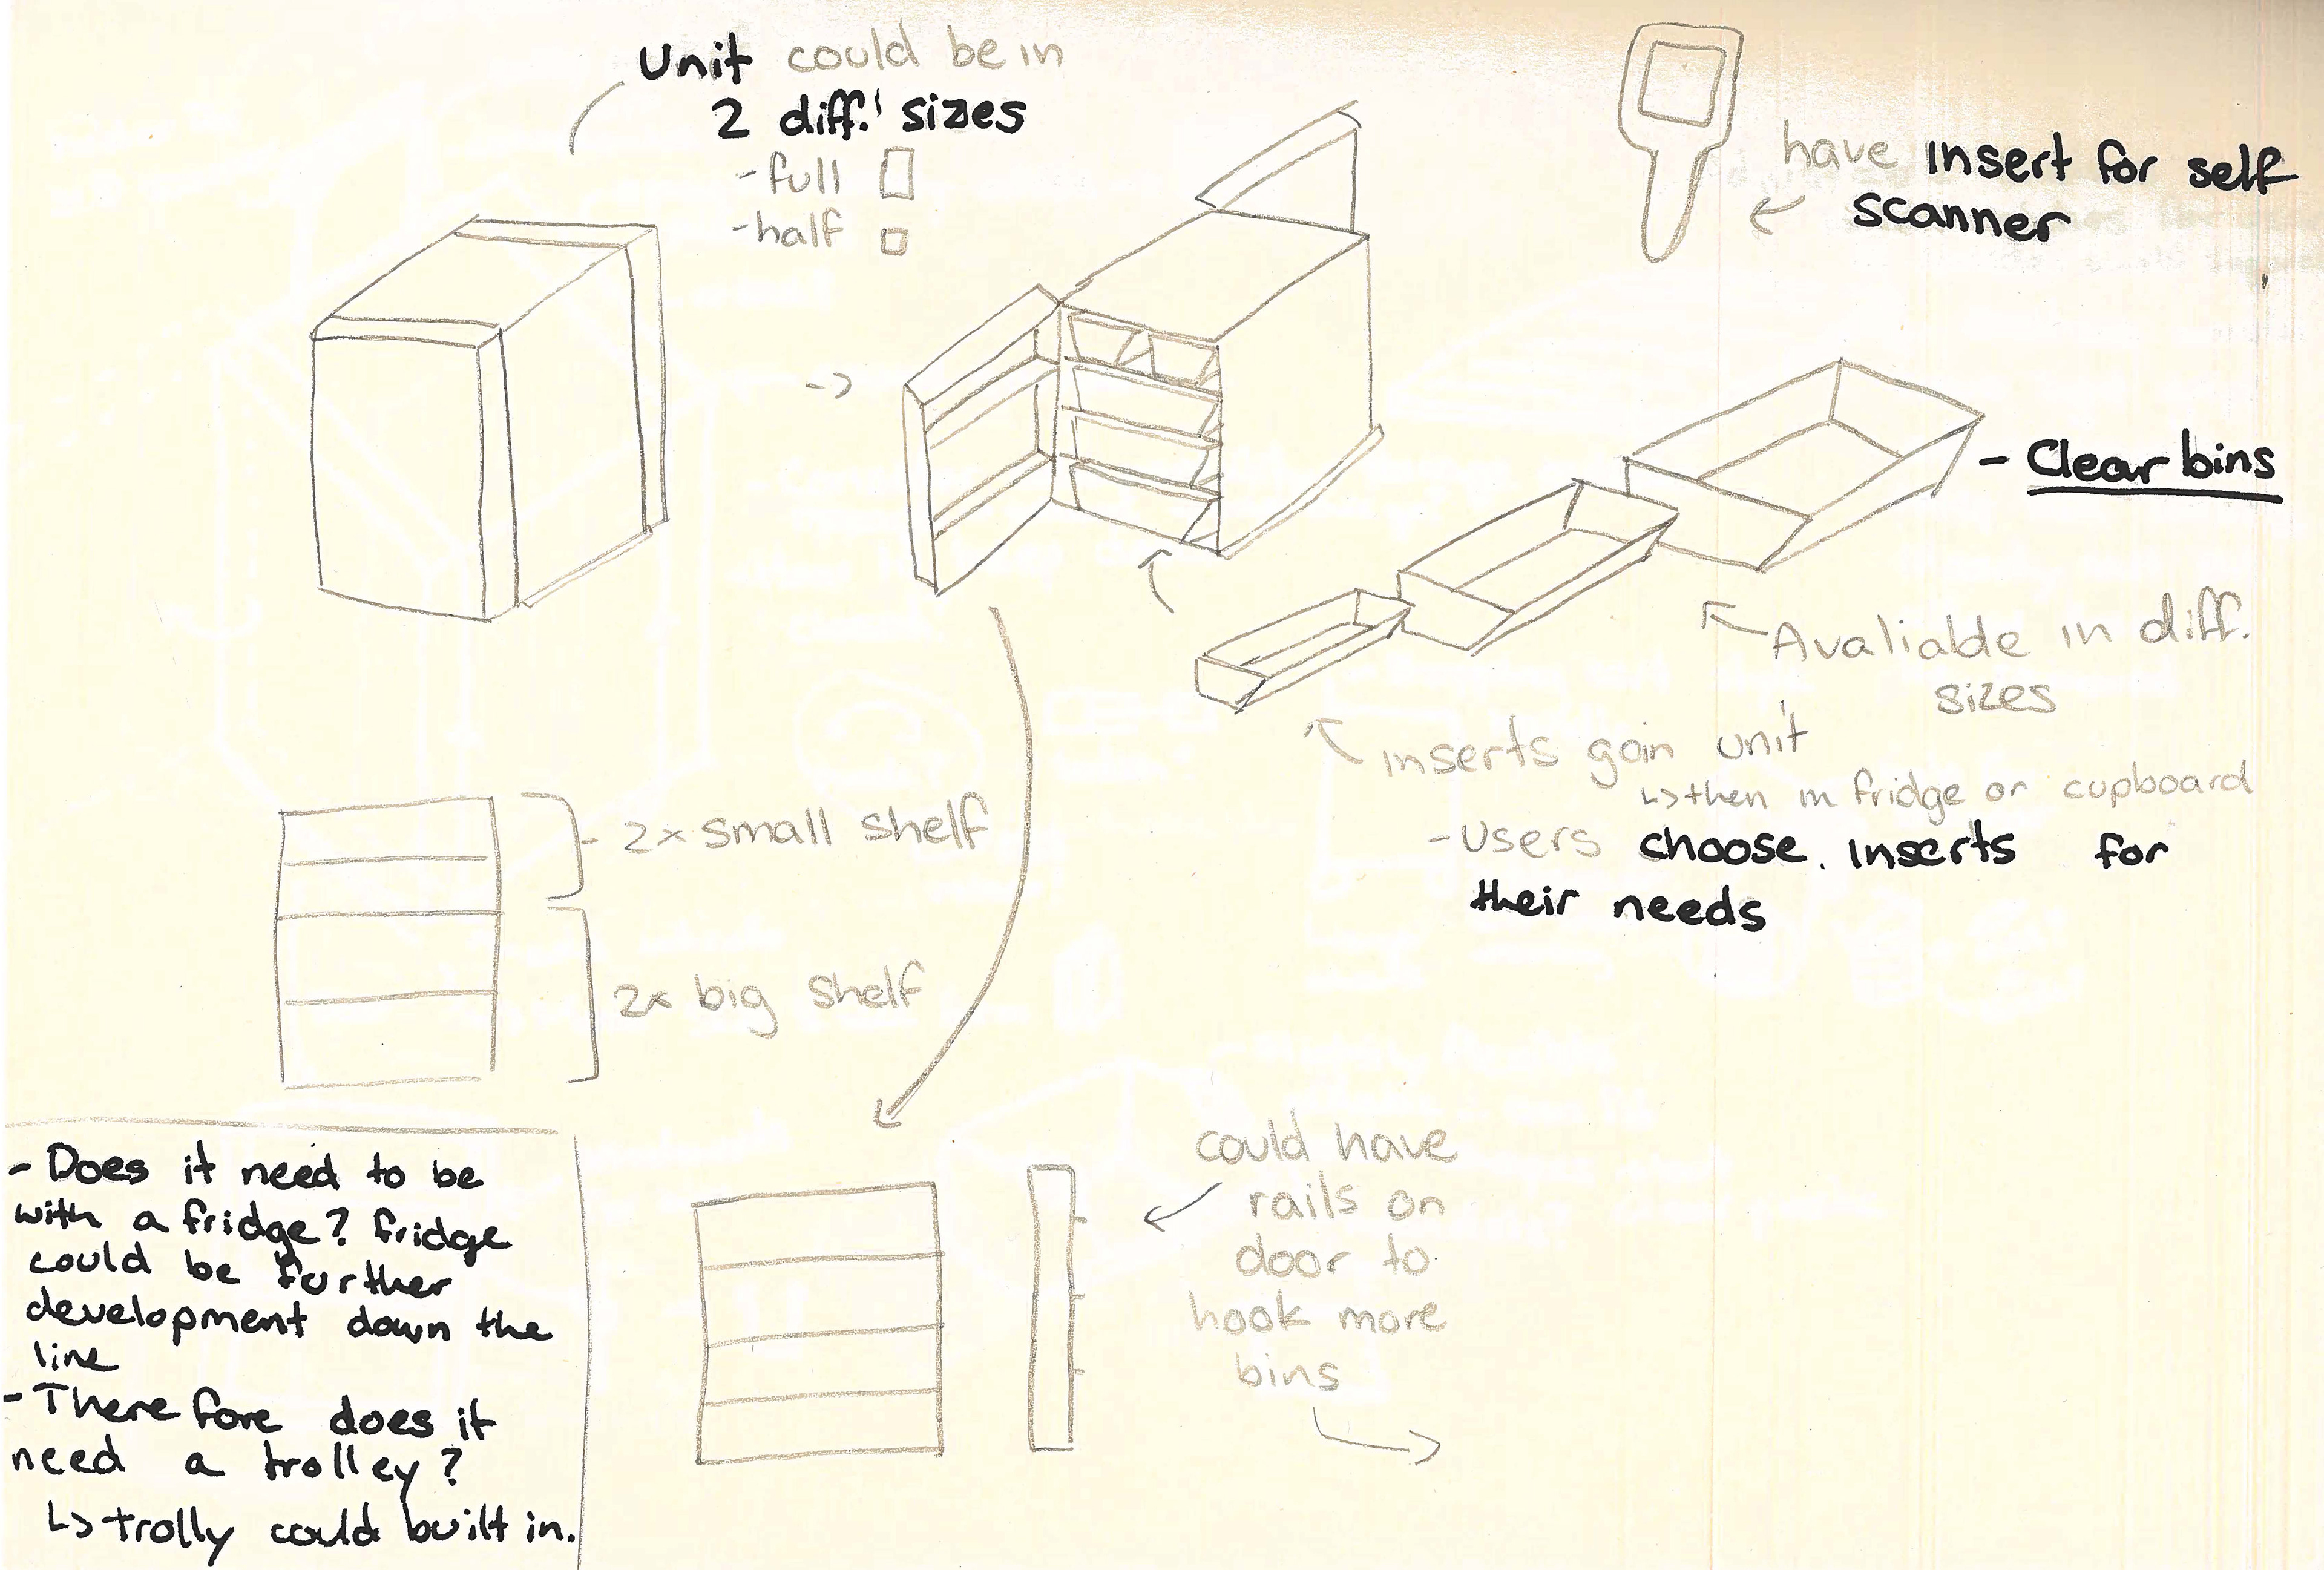 Unit could be in
2 diff. sizes
- full
- half
have insert for self
scanner
- Clear bins
Avaliable in diff.
sizes
inserts go in unit
↳ then in fridge or cupboard
- Users choose inserts for
their needs
- 2x small shelf
2x big shelf
could have
rails on
door to
hook more
bins
- Does it need to be
with a fridge? fridge
could be further
development down the
line
- Therefore does it
need a trolley?
↳ trolly could built in.